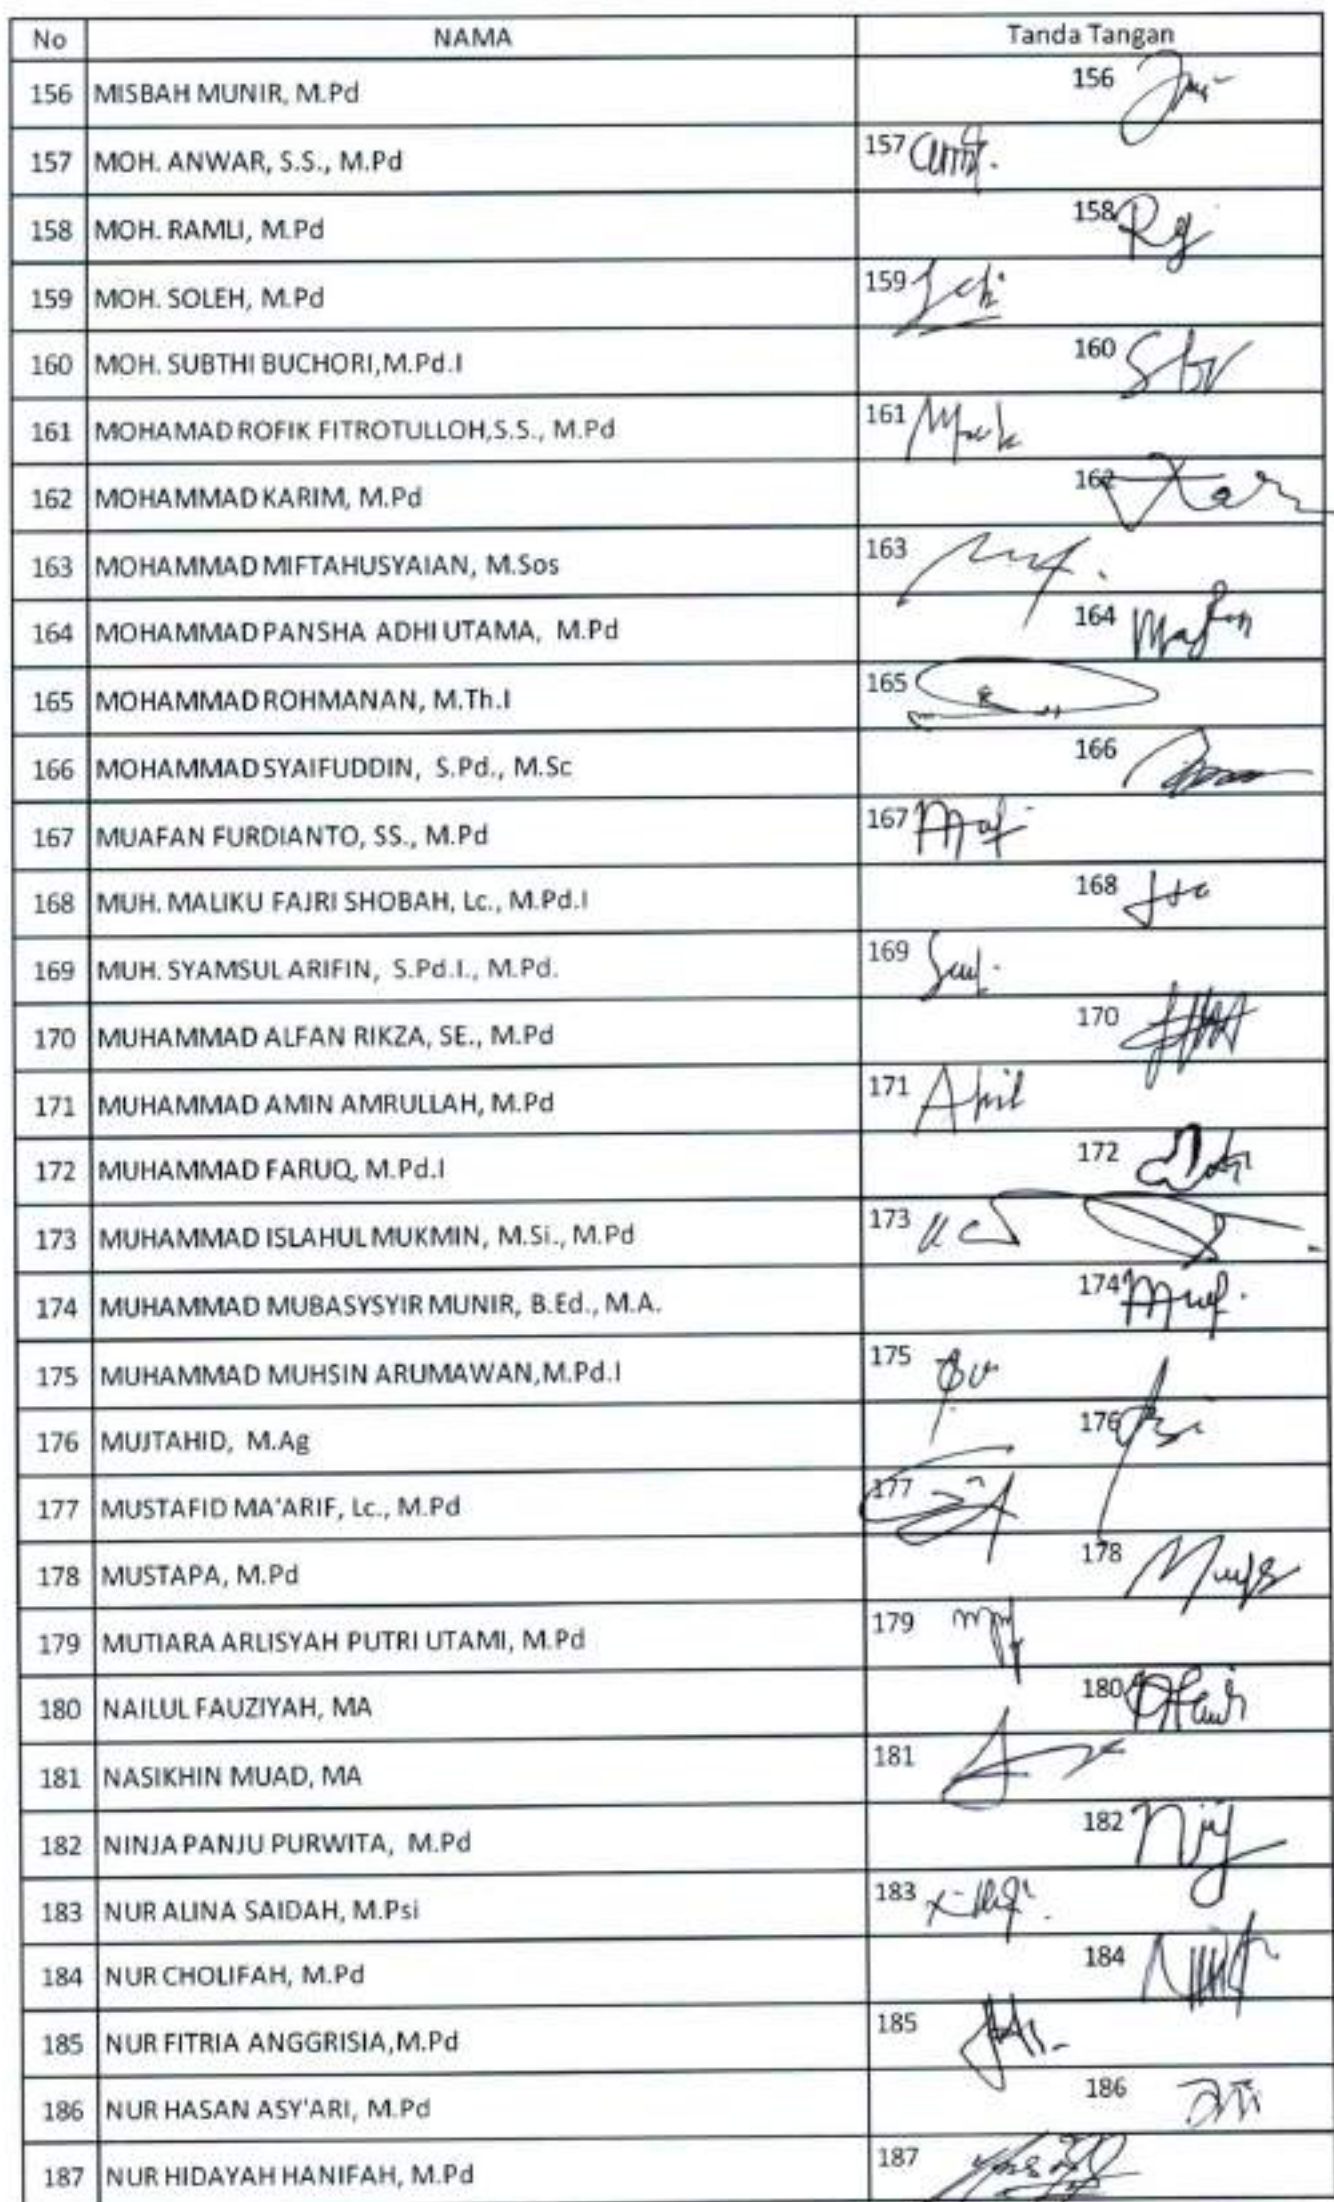 No NAMA Tanda Tangan
156 MISBAH MUNIR, M.Pd 156
157 MOH. ANWAR, S.S., M.Pd 157
158 MOH. RAMLI, M.Pd 158
159 MOH. SOLEH, M.Pd 159
160 MOH. SUBTHI BUCHORI,M.Pd.I 160
161 MOHAMAD ROFIK FITROTULLOH,S.S., M.Pd 161
162 MOHAMMAD KARIM, M.Pd 162
163 MOHAMMAD MIFTAHUSYAIAN, M.Sos 163
164 MOHAMMAD PANSHA ADHI UTAMA, M.Pd 164
165 MOHAMMAD ROHMANAN, M.Th.I 165
166 MOHAMMAD SYAIFUDDIN, S.Pd., M.Sc 166
167 MUAFAN FURDIANTO, SS., M.Pd 167
168 MUH. MALIKU FAJRI SHOBAH, Lc., M.Pd.I 168
169 MUH. SYAMSUL ARIFIN, S.Pd.I., M.Pd. 169
170 MUHAMMAD ALFAN RIKZA, SE., M.Pd 170
171 MUHAMMAD AMIN AMRULLAH, M.Pd 171
172 MUHAMMAD FARUQ, M.Pd.I 172
173 MUHAMMAD ISLAHUL MUKMIN, M.Si., M.Pd 173
174 MUHAMMAD MUBASYSYIR MUNIR, B.Ed., M.A. 174
175 MUHAMMAD MUHSIN ARUMAWAN,M.Pd.I 175
176 MUJTAHID, M.Ag 176
177 MUSTAFID MA'ARIF, Lc., M.Pd 177
178 MUSTAPA, M.Pd 178
179 MUTIARA ARLISYAH PUTRI UTAMI, M.Pd 179
180 NAILUL FAUZIYAH, MA 180
181 NASIKHIN MUAD, MA 181
182 NINJA PANJU PURWITA, M.Pd 182
183 NUR ALINA SAIDAH, M.Psi 183
184 NUR CHOLIFAH, M.Pd 184
185 NUR FITRIA ANGGRISIA,M.Pd 185
186 NUR HASAN ASY'ARI, M.Pd 186
187 NUR HIDAYAH HANIFAH, M.Pd 187